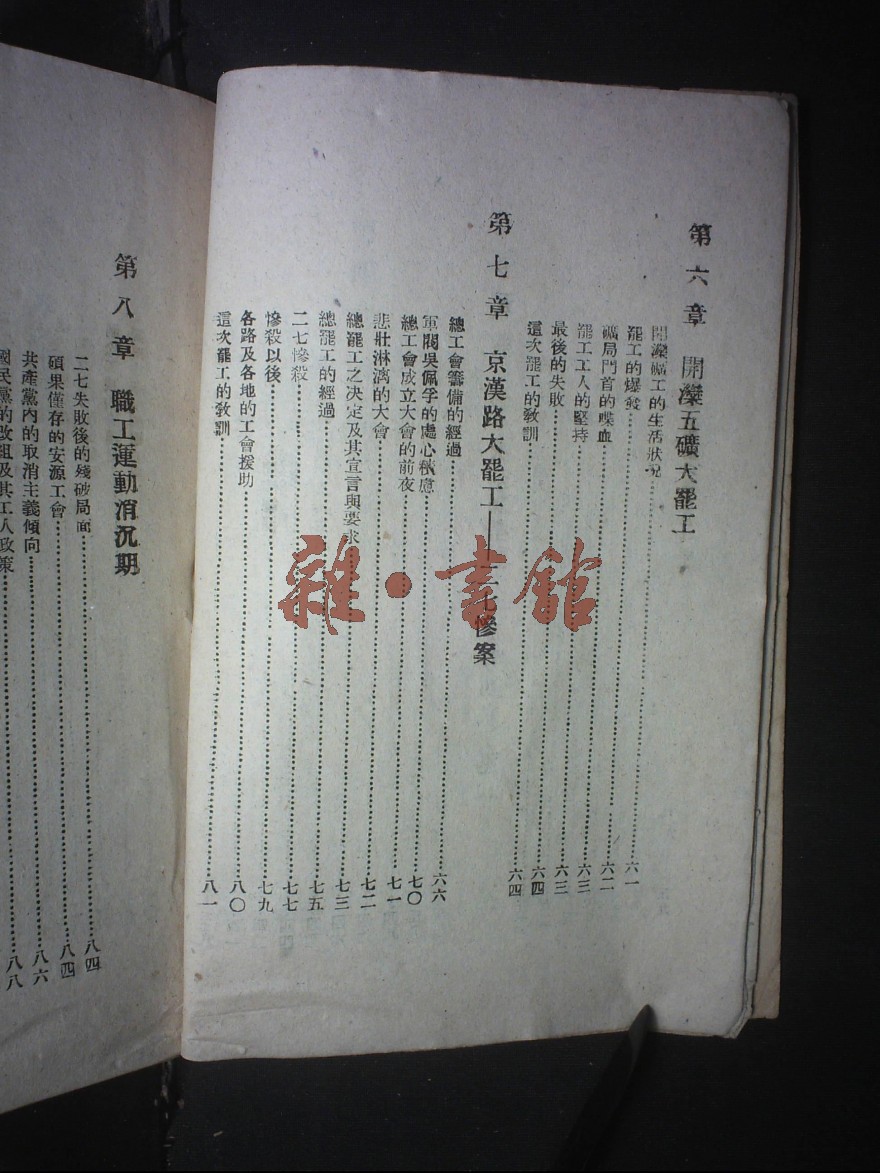 第六章 開灤五礦大罷工
開灤礦工的生活狀況……六一
罷工的爆發……六二
礦局門首的喋血……六三
罷工工人的堅持……六三
最後的失敗……六四
這次罷工的教訓……六四
第七章 京漢路大罷工——二七慘案
總工會籌備的經過……六六
軍閥吳佩孚的處心積慮……七〇
總工會成立大會的前夜……七一
悲壯淋漓的大會……七二
總罷工之決定及其宣言與要求……七三
總罷工的經過……七五
二七慘殺……七七
慘殺以後……七九
各路及各地的工會援助……八〇
這次罷工的教訓……八一
第八章 職工運動消沉期
二七失敗後的殘破局面……八四
碩果僅存的安源工會……八四
共產黨內的取消主義傾向……八六
國民黨的改組及其工人政策……八八
雜·書館